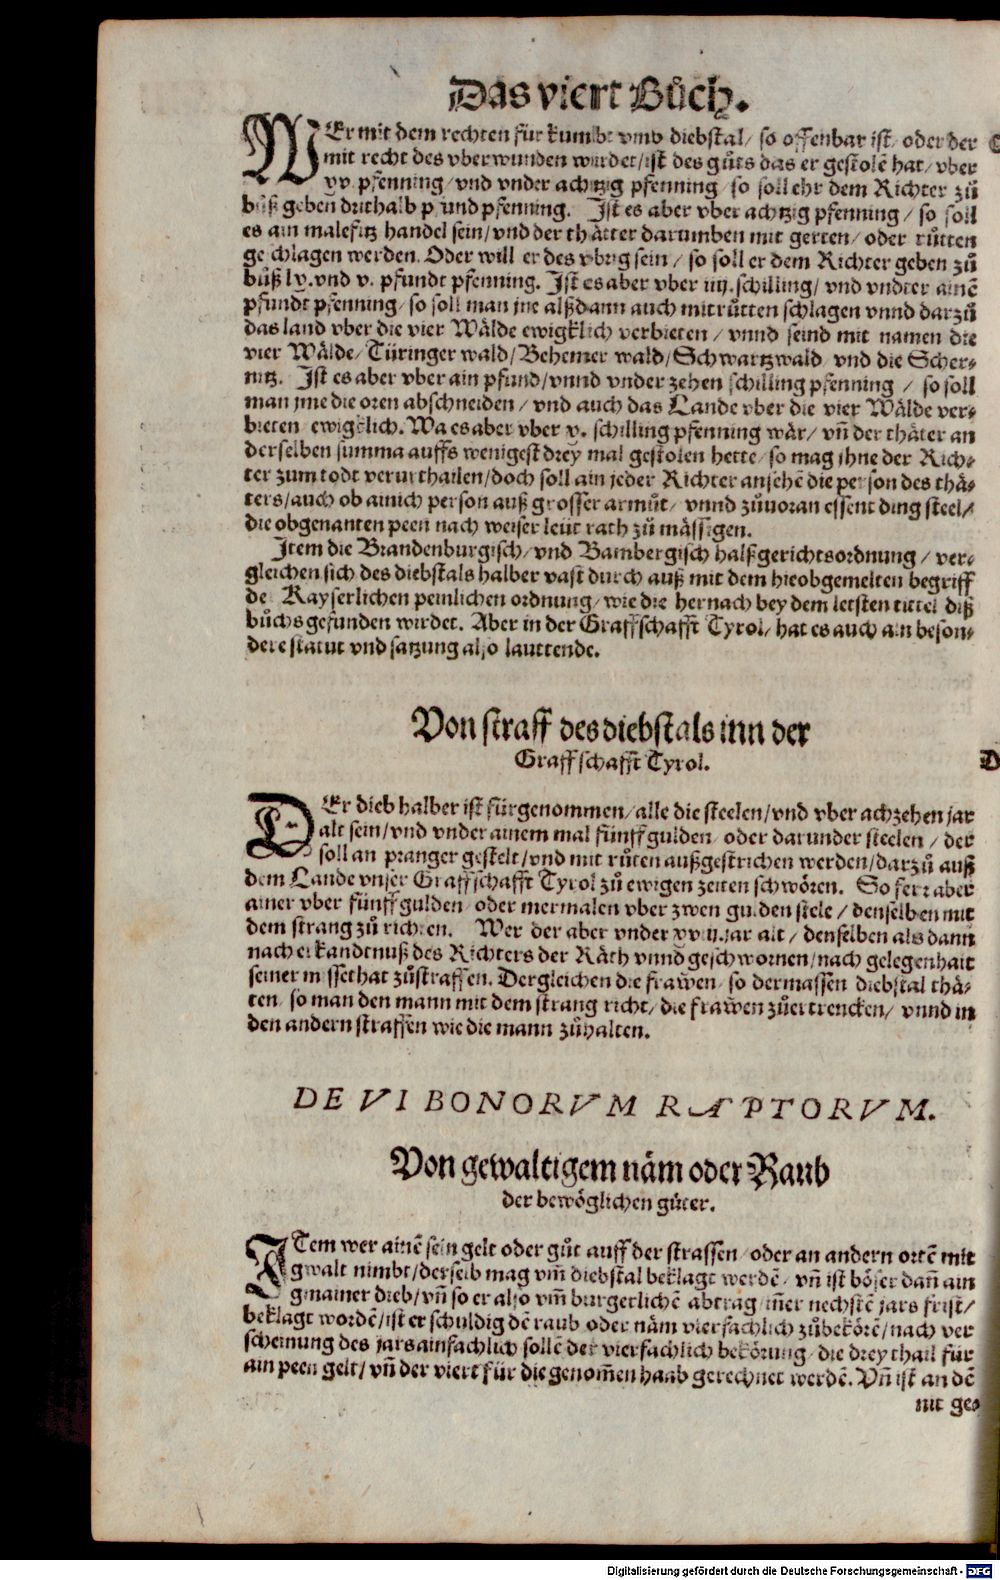 Das viert Bůch.
WEr mit dem rechten für kumbt vmb diebstal/ so offenbar ist/ oder der
mit recht des vberwunden wirdet/ ist des gůts das er gestolē hat/ vber
xv. pfenning/ vnd vnder achtzig pfenning/ so soll ehr dem Richter zů
bůß geben drithalb pfund pfenning. Ist es aber vber achtzig pfenning/ so soll
es ain malefitz handel sein/ vnd der thåtter darumben mit gerten/ oder růtten
geschlagen werden. Oder will er des vbrig sein/ so soll er dem Richter geben zů
bůß lx. vnd v. pfundt pfenning. Ist es aber vber iiij. schilling/ vnd vndter ainē
pfundt pfenning/ so soll man jne alßdann auch mit růtten schlagen vnnd darzů
das land vber die vier Wålde ewigklich verbieten/ vnnd seind mit namen die
vier Wålde/ Türinger wald/ Behemer wald/ Schwartzwald/ vnd die Scher-
nitz. Ist es aber vber ain pfund/ vnnd vnder zehen schilling pfenning/ so soll
man jme die oren abschneiden/ vnd auch das Lande vber die vier Wålde ver-
bieten ewigklich. Wa es aber vber x. schilling pfenning wår/ vñ der thåter an
derselben summa auffs wenigest drey mal gestolen hette/ so mag ihne der Rich-
ter zum todt verurthailen/ doch soll ain jeder Richter ansehē die person des thå-
ters/ auch ob ainich person auß grosser armůt/ vnnd zůuoran essent ding steel/
die obgenanten peen nach weiser leüt rath zů måssigen.
Item die Brandenburgisch/ vnd Bambergisch halßgerichtsordnung/ ver-
gleichen sich des diebstals halber vast durch auß mit dem hieobgemelten begriff
der Kayserlichen peinlichen ordnung/ wie die hernach bey dem letsten tittel diß
bůchs gefunden wirdet. Aber in der Graffschafft Tyrol/ hat es auch ain beson-
dere statut vnd satzung also lauttende.
Von straff des diebstals inn der
Graffschafft Tyrol.
DEr dieb halber ist fürgenommen/ alle die steelen/ vnd vber achzehen jar
alt sein/ vnd vnder ainem mal fünff gulden/ oder darunder steelen/ der
soll an pranger gestelt/ vnd mit růten außgestrichen werden/ darzů auß
dem Lande vnser Graffschafft Tyrol zů ewigen zeiten schwören. So ferr aber
ainer vber fünff gulden/ oder mermalen vber zwen gulden stele/ denselben mit
dem strang zů richten. Wer der aber vnder xviij. jar alt/ denselben als dann
nach erkandtnuß des Richters der Råth vnnd geschwornen/ nach gelegenhait
seiner missethat zůstraffen. Dergleichen die frawen/ so dermassen diebstal thå-
ten/ so man den mann mit dem strang richt/ die frawen zůertrencken/ vnnd in
den andern straffen wie die mann zůhalten.
DE VI BONORVM RAPTORVM.
Von gewaltigem nåm oder Raub
der bewöglichen gůter.
ITem wer ainē sein gelt oder gůt auff der strassen/ oder an andern ortē mit
gwalt nimbt/ derselb mag vm̃ diebstal beklagt werdē/ vñ ist böser dañ ain
gmainer dieb/ vñ so er also vm̃ burgerlichē abtrag/ iñer nechstē jars frist/
beklagt wordē/ ist er schuldig dē raub oder nåm vierfachlich zůbekörē/ nach ver
scheinung des jars ainfachlich sollē der vierfachlich bekörung/ die drey thail für
ain peen gelt/ vñ der viert für die genom̃en haab gerechnet werdē. Vñ ist an dē
nit ge-
Digitalisierung gefördert durch die Deutsche Forschungsgemeinschaft - DFG